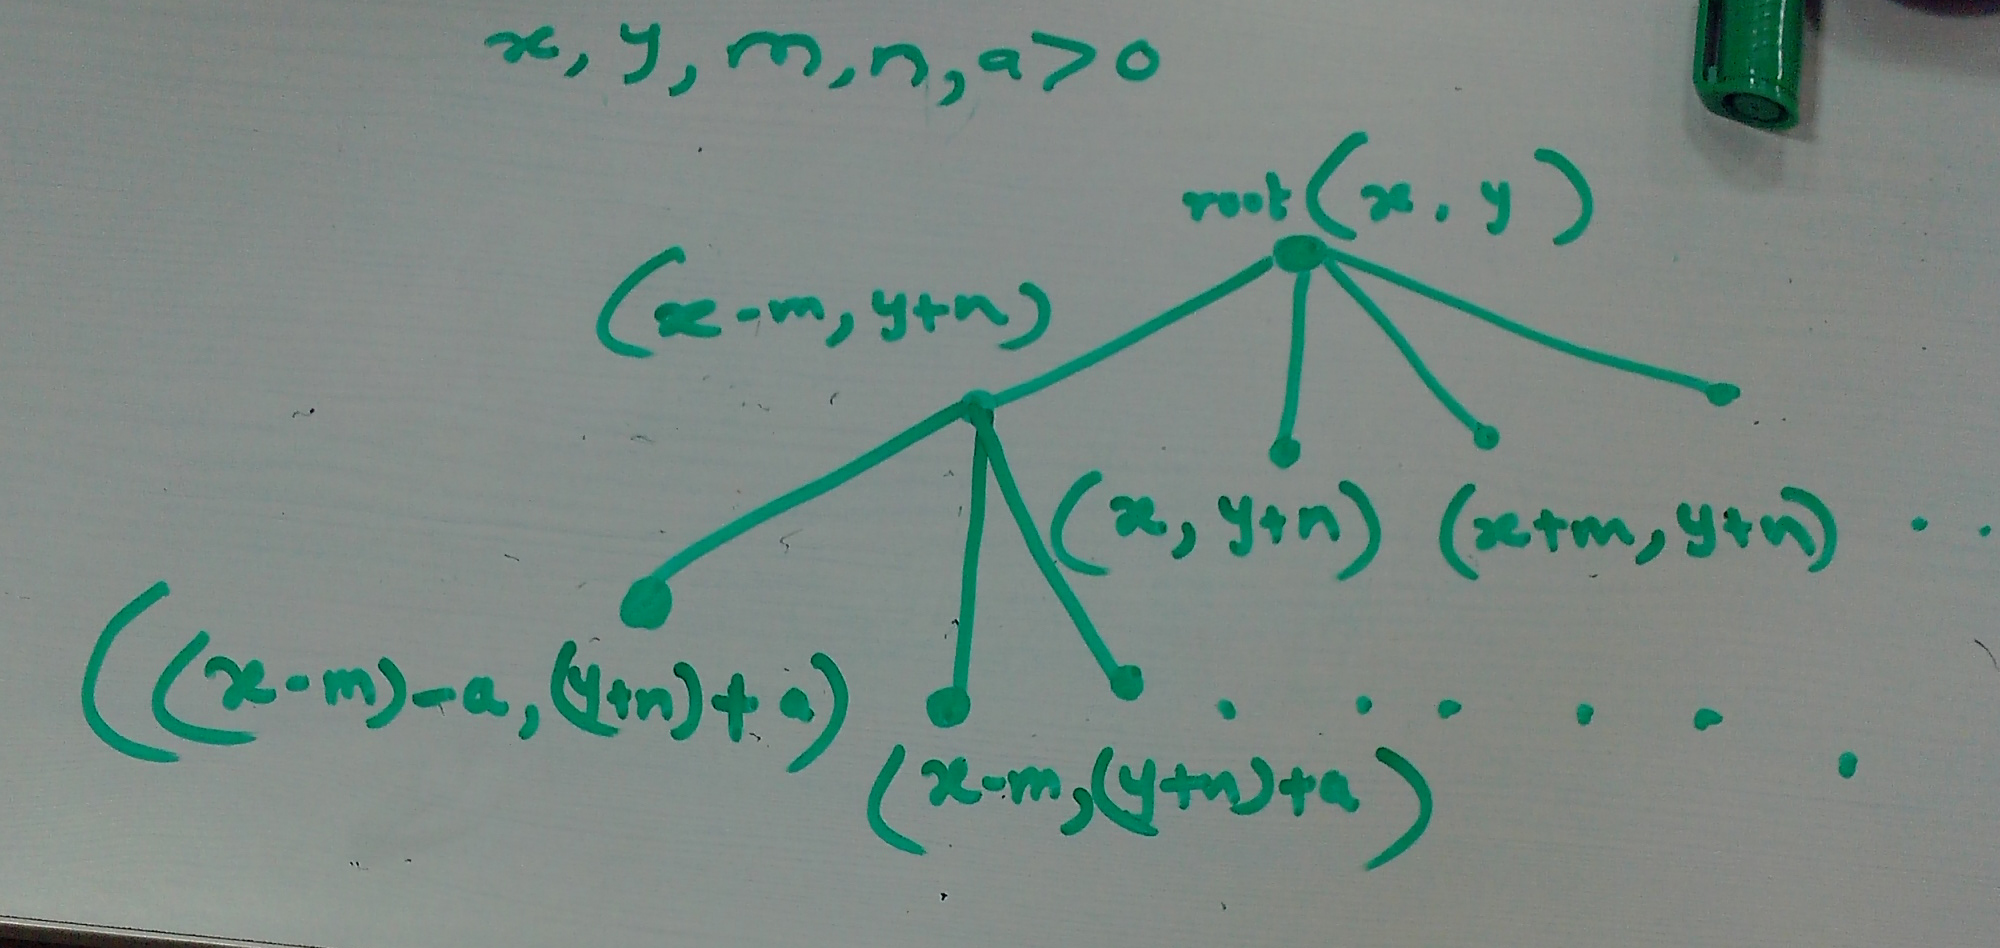 x, y, m, n, a > 0
root (x, y)
(x-m, y+n)
(x, y+n) (x+m, y+n) . .
((x-m)-a, (y+n)+a) . . . . . .
(x-m, (y+n)+a)